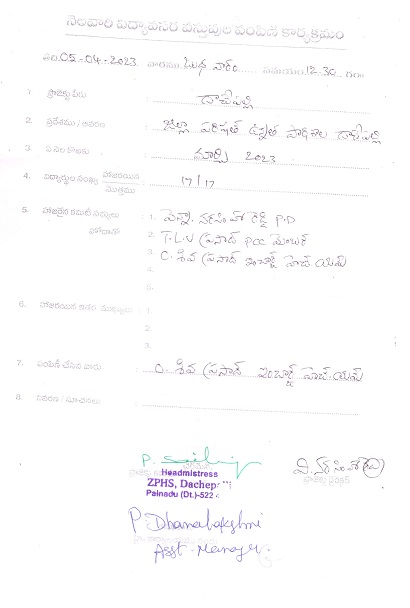 నెలవారి విద్యావసర వస్తువుల పంపిణీ కార్యక్రమం
తేది 05-04-2023 వారము బుధ వారం సమయం 12.30 గం॥
1. ప్రాజెక్టు పేరు దాచేపల్లి
2. ప్రదేశము / వివరణ జిల్లా పరిషత్ ఉన్నత పాఠశాల దాచేపల్లి
3. ఏ నెల కొరకు మార్చి 2023
4. విద్యార్థుల సంఖ్య హాజరయిన / మొత్తము 17/17
5. హాజరైన కమిటీ సభ్యులు 1. నరసింహారెడ్డి P.D
హోదాతో 2. T.L.V ప్రసాద్ PCC మెంబర్
3. C. శివ ప్రసాద్ ఇంచార్జ్ హెచ్.యమ్
4.
5.
6. హాజరయిన ఇతర ముఖ్యులు 1.
2.
3.
7. పంపిణీ చేసిన వారు C. శివ ప్రసాద్ ఇంచార్జ్ హెచ్.యమ్
8. వివరణ / సూచనలు
Headmistress
ZPHS, Dachep
Palnadu (Dt.)-522
ప్రాజెక్టు డైరెక్టర్
P. Dhanalakshmi
Asst. Manager